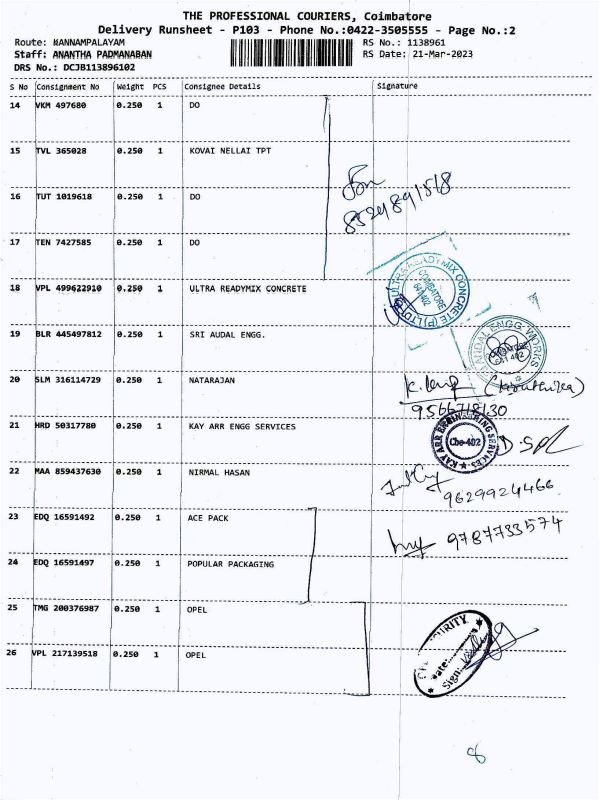 THE PROFESSIONAL COURIERS, Coimbatore
Delivery Runsheet - P103 - Phone No.:0422-3505555 - Page No.:2
Route: MANNAMPALAYAM RS No.: 1138961
Staff: ANANTHA PADMANABAN RS Date: 21-Mar-2023
DRS No.: DCJB113896102
S No Consignment No Weight PCS Consignee Details Signature
14 VKM 497680 0.250 1 DO
15 TVL 365028 0.250 1 KOVAI NELLAI TPT
16 TUT 1019618 0.250 1 DO
17 TEN 7427585 0.250 1 DO
18 VPL 499622910 0.250 1 ULTRA READYMIX CONCRETE
ULTRA READYMIX CONCRETE (P) LTD
COIMBATORE
641 402
19 BLR 445497812 0.250 1 SRI AUDAL ENGG.
20 SLM 316114729 0.250 1 NATARAJAN
9566718130
21 HRD 50317780 0.250 1 KAY ARR ENGG SERVICES
KAY ARR ENGINEERING SERVICES
Cbe-402
22 MAA 859437630 0.250 1 NIRMAL HASAN
9629924466
23 EDQ 16591492 0.250 1 ACE PACK
9787733574
24 EDQ 16591497 0.250 1 POPULAR PACKAGING
25 TMG 200376987 0.250 1 OPEL
26 VPL 217139518 0.250 1 OPEL
Date:
Sign:
8